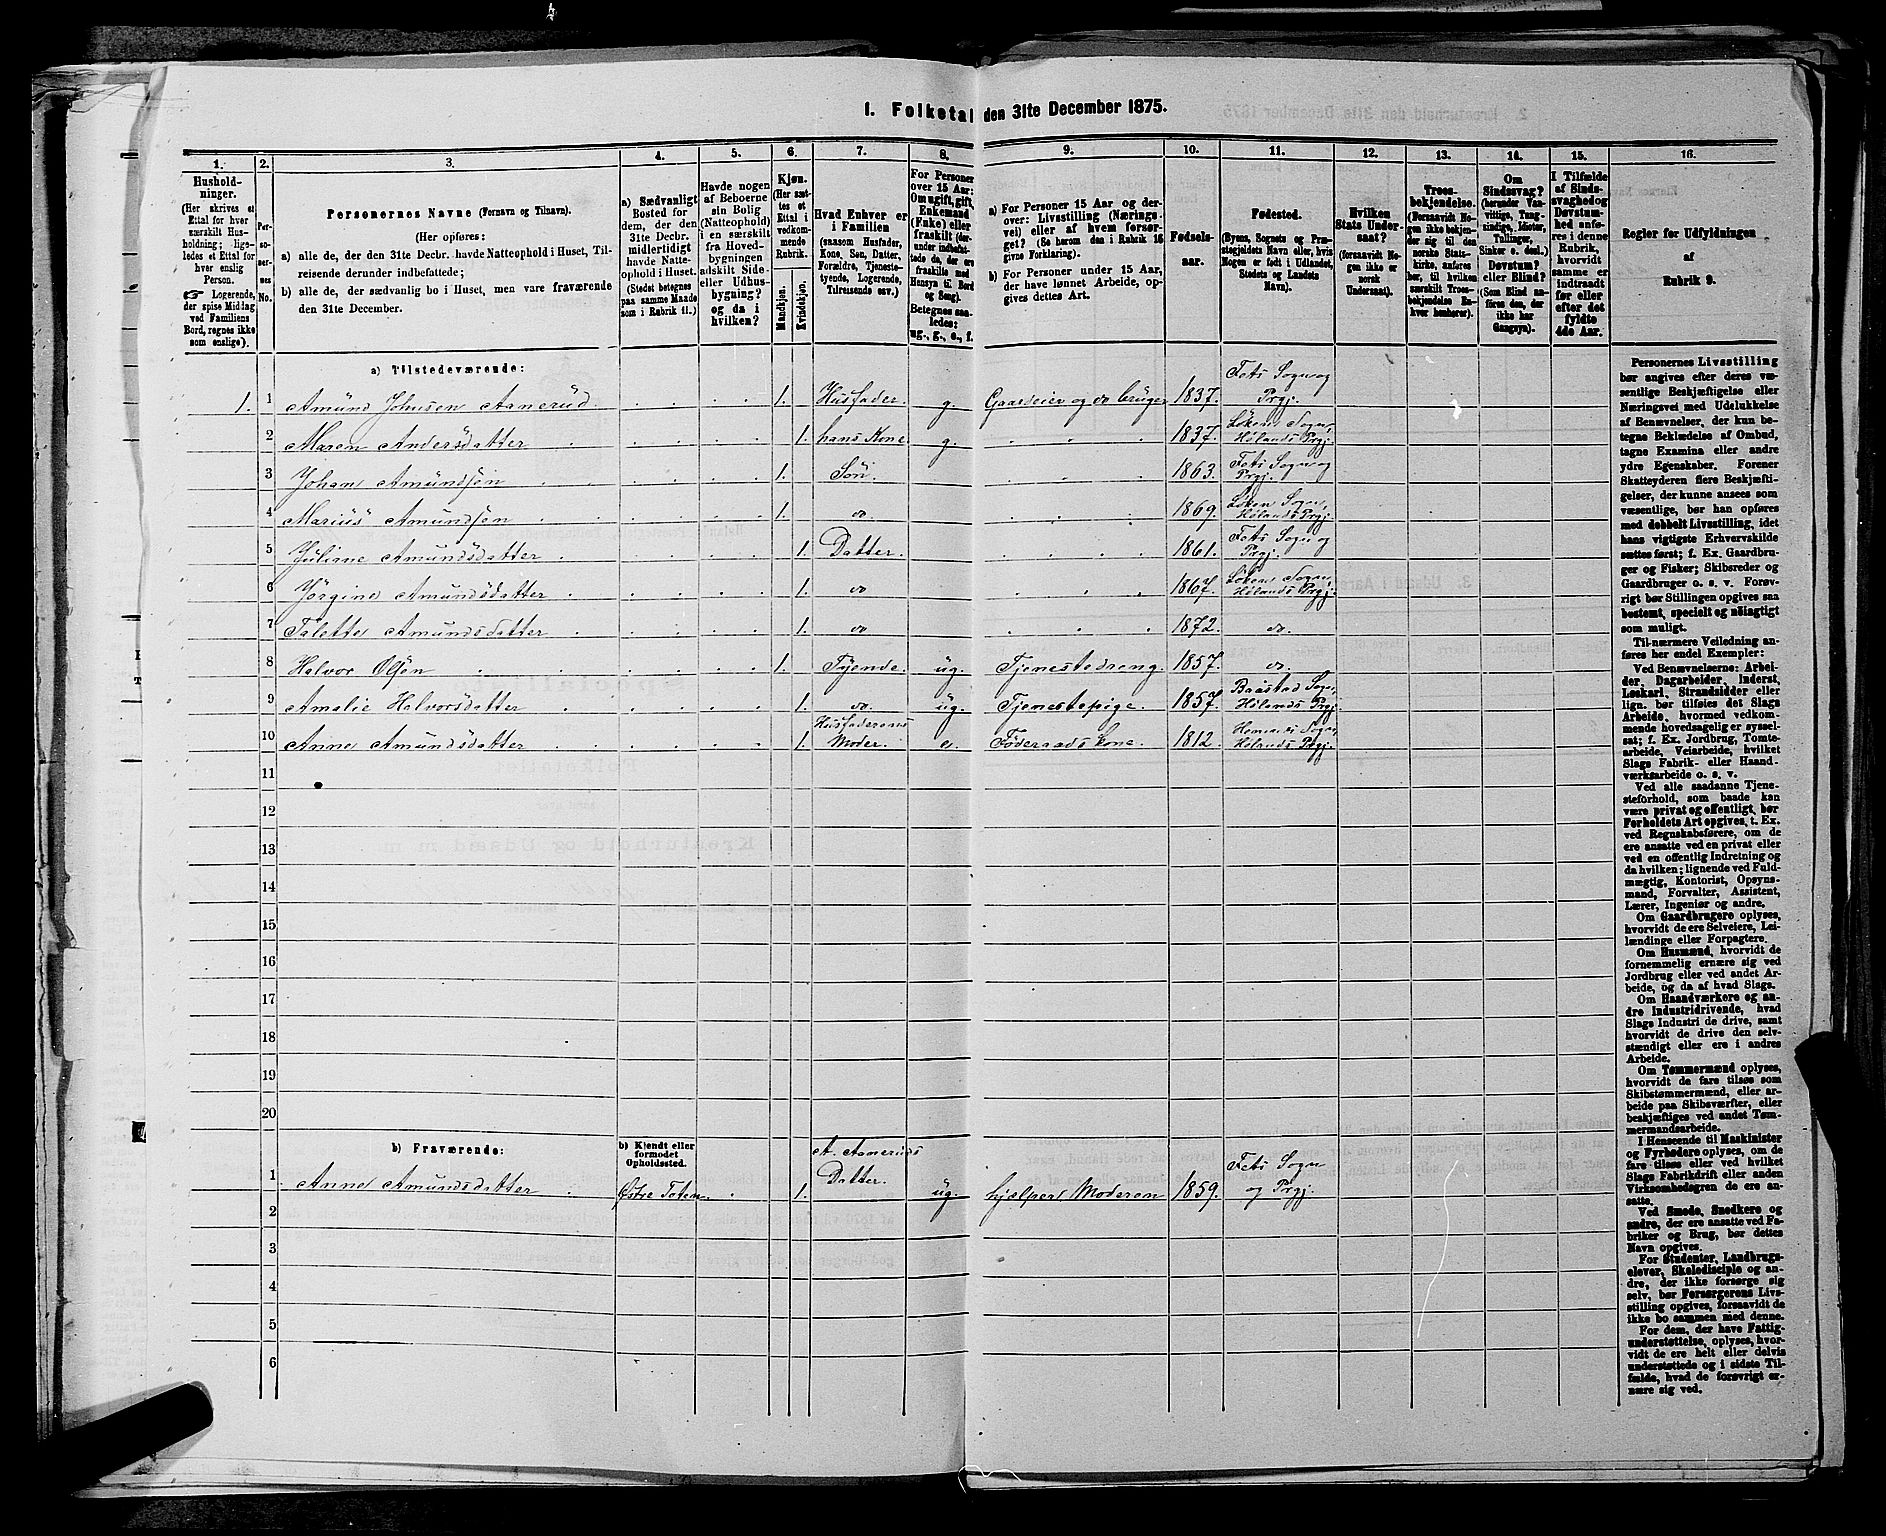 1. Folketal den 31te December 1875.
1. 2. 3. 4. 5. 6. 7. 8. 9. 10. 11. 12. 13. 14. 15. 16.
Hushold-
ninger.
(Her skrives et
Ettal for hver
særskilt Hus-
holdning; lige-
ledes et Ettal for
hver enslig
Person.
☞ Logerende,
der spise Middag
ved Familiens
Bord, regnes ikke
som enslige).
Per-
so-
ner-
nes
No.
Personernes Navne (Fornavn og Tilnavn).
(Her opføres:
a) alle de, der den 31te Decbr. havde Natteophold i Huset, Til-
reisende derunder indbefattede;
b) alle de, der sædvanlig bo i Huset, men vare fraværende
den 31te December.
a) Sædvanligt
Bosted for
dem, der den
31te Decbr.
midlertidigt
havde Natte-
ophold i Huset.
(Stedet betegnes
paa samme Maade
som i Rubrik 11.)
Havde nogen
af Beboerne
sin Bolig
(Natteophold)
i en særskilt
fra Hoved-
bygningen
adskilt Side-
eller Udhus-
bygning?
og da i
hvilken?
Kjøn.
(Her sæt-
tes et
Ettal i
vedkom-
mende
Rubrik.
Mandkjøn.
Kvindekjøn.
Hvad Enhver er
i Familien
(saasom Husfader,
Kone, Søn, Datter,
Forældre, Tjeneste-
tyende, Logerende,
Tilreisende osv.)
For Personer
over 15 Aar:
Om ugift, gift,
Enkemand
(Enke) eller
fraskilt (der-
under indbefat-
tede de, der
ere fraskilte med
Hensyn til Bord
og Seng).
Betegnes saa-
ledes:
ug., g., e., f.
a) For Personer 15 Aar og der-
over: Livsstilling (Nærings-
vei) eller af hvem forsør-
get? (Se herom den i Rubrik 16
givne Forklaring).
b) For Personer under 15 Aar,
der have lønnet Arbeide, op-
gives dettes Art.
Fødsels-
aar.
Fødested.
(Byens, Sognets og Præ-
stegjeldets Navn eller, hvis
Nogen er født i Udlandet,
Stedets og Landets
Navn).
Hvilken
Stats Under-
saat?
(forsaavidt No-
gen ikke er
norsk
Undersaat).
Troes-
bekjendelse.
(Forsaavidt No-
gen ikke bekjen-
der sig til den
norske Stats-
kirke, anføres
her særskilt Troes-
bekjendelse En-
hver henhører).
Om
Sindssvag?
(herunder Van-
vittige, Tung-
sindige, Idioter,
Tullinger,
Sinker o. desl.)
Døvstum?
eller Blind?
(Som Blind an-
føres den, der
ikke har
Gangsyn).
I Tilfælde
af Sinds-
svaghed og
Døvstum-
hed anfø-
res i denne
Rubrik,
hvorvidt
samme er
indtraadt
før eller
efter det
fyldte
4de Aar.
Regler for Udfyldningen
af
Rubrik 9.
a) Tilstedeværende:
1. 1 Amund Johnsen Aanerud 1. Husfader. g. Gaardeier og do bruger 1837. Fets Sogn og Prgj.
2 Maren Andersdatter 1. hans Kone g. 1837. Löken Sogn, Hölands Prgj.
3 Johan Amundsen 1. Sön. 1863. Fets Sogn og Prgj.
4 Marius Amundsen 1. do 1869. Löken Sogn, Hölands Prgj.
5 Juliane Amundsdatter 1. Datter. 1861. Fets Sogn og Prgj.
6 Jörgine Amundsdatter 1. do 1867. Löken Sogn, Hölands Prgj.
7 Talette Amundsdatter 1. do 1872. do.
8 Halvor Olsen 1. Tyende. ug. Tjenestedreng 1857. do.
9 Amalie Halvorsdatter 1. do. ug. Tjenestepige. 1857. Baastad Sogn, Hölands Prgj.
10 Anne Amundsdatter 1. Husfaderens Moder. e. Föderaadskone. 1812. Hemnæs Sogn, Hölands Prgj.
11
12
13
14
15
16
17
18
19
20
b) Fraværende:
b) Kjendt eller
formodet
Opholdssted.
1 Anne Amundsdatter Østre Toten. 1. A. Aaneruds Datter. ug. hjælper Moderen 1859. Fets Sogn og Prgj.
2
3
4
5
6
Personernes Livsstilling
bør angives efter deres væ-
sentlige Beskjæftigelse eller
Næringsvei med Udelukkelse
af Benævnelser, der kun be-
tegne Beklædelse af Ombud,
tagne Examina eller andre
ydre Egenskaber. Forener
Skatteyderen flere Beskjæfti-
gelser, der kunne ansees som
væsentlige, bør han opføres
med dobbelt Livsstilling, idet
hans vigtigste Erhvervskilde
sættes først; f. Ex. Gaardbru-
ger og Fisker; Skibsreder og
Gaardbruger o. s. v. Forøv-
rigt bør Stillingen opgives saa
bestemt, specielt og nøiagtigt
som muligt.
Til nærmere Veiledning an-
føres her endel Exempler:
Ved Benævnelserne: Arbei-
der, Dagarbeider, Inderst,
Løskarl, Strandsidder eller
lign. bør tilføies det Slags
Arbeide, hvormed vedkom-
mende hovedsagelig er syssel-
sat; f. Ex. Jordbrug, Tomte-
arbeide, Veiarbeide, hvilket
Slags Fabrik- eller Haand-
værksarbeide o. s. v.
Ved alle saadanne Tjene-
steforhold, som baade kan
være privat og offentligt, bør
Forholdets Art opgives, t. Ex.
ved Regnskabsførere, om de
ere ansatte ved en privat eller
ved en offentlig Indretning og
da hvilken; lignende ved Fuld-
mægtig, Kontorist, Opsyns-
mand, Forvalter, Assistent,
Lærer, Ingeniør og andre.
Om Gaardbrugere oplyses,
hvorvidt de ere Selveiere, Lei-
lændinge eller Forpagtere.
Om Husmænd, hvorvidt de
fornemmelig ernære sig ved
Jordbrug eller ved andet Ar-
beide, og da af hvad Slags.
Om Haandværkere og an-
dre Industridrivende, hvad
Slags Industri de drive, samt
hvorvidt de drive den selv-
stændigt eller ere i andres
Arbeide.
Om Tømmermænd oplyses,
hvorvidt de fare tilsøs som
Skibstømmermænd, eller ar-
beide paa Skibsværfter, eller
beskjæftiges ved andet Tøm-
mermandsarbeide.
I Henseende til Maskinister
og Fyrbødere oplyses, om de
fare tilsøs eller ved hvilket
Slags Fabrikdrift eller anden
Virksomhedsgren de ere an-
satte.
Ved Smede, Snedkere og
andre, der ere ansatte ved Fa-
briker og Brug, bør dettes
Navn opgives.
For Studenter, Landbrugs-
elever, Skoledisciple og an-
dre, der ikke forsørge sig
selv, bør Forsørgerens Livs-
stilling opgives, forsaavidt de
ikke bo sammen med denne.
For dem, der have Fattig-
understøttelse, oplyses, hvor-
vidt de ere helt eller delvis
understøttede og i sidste Til-
fælde, hvad de forøvrigt er-
nære sig ved.